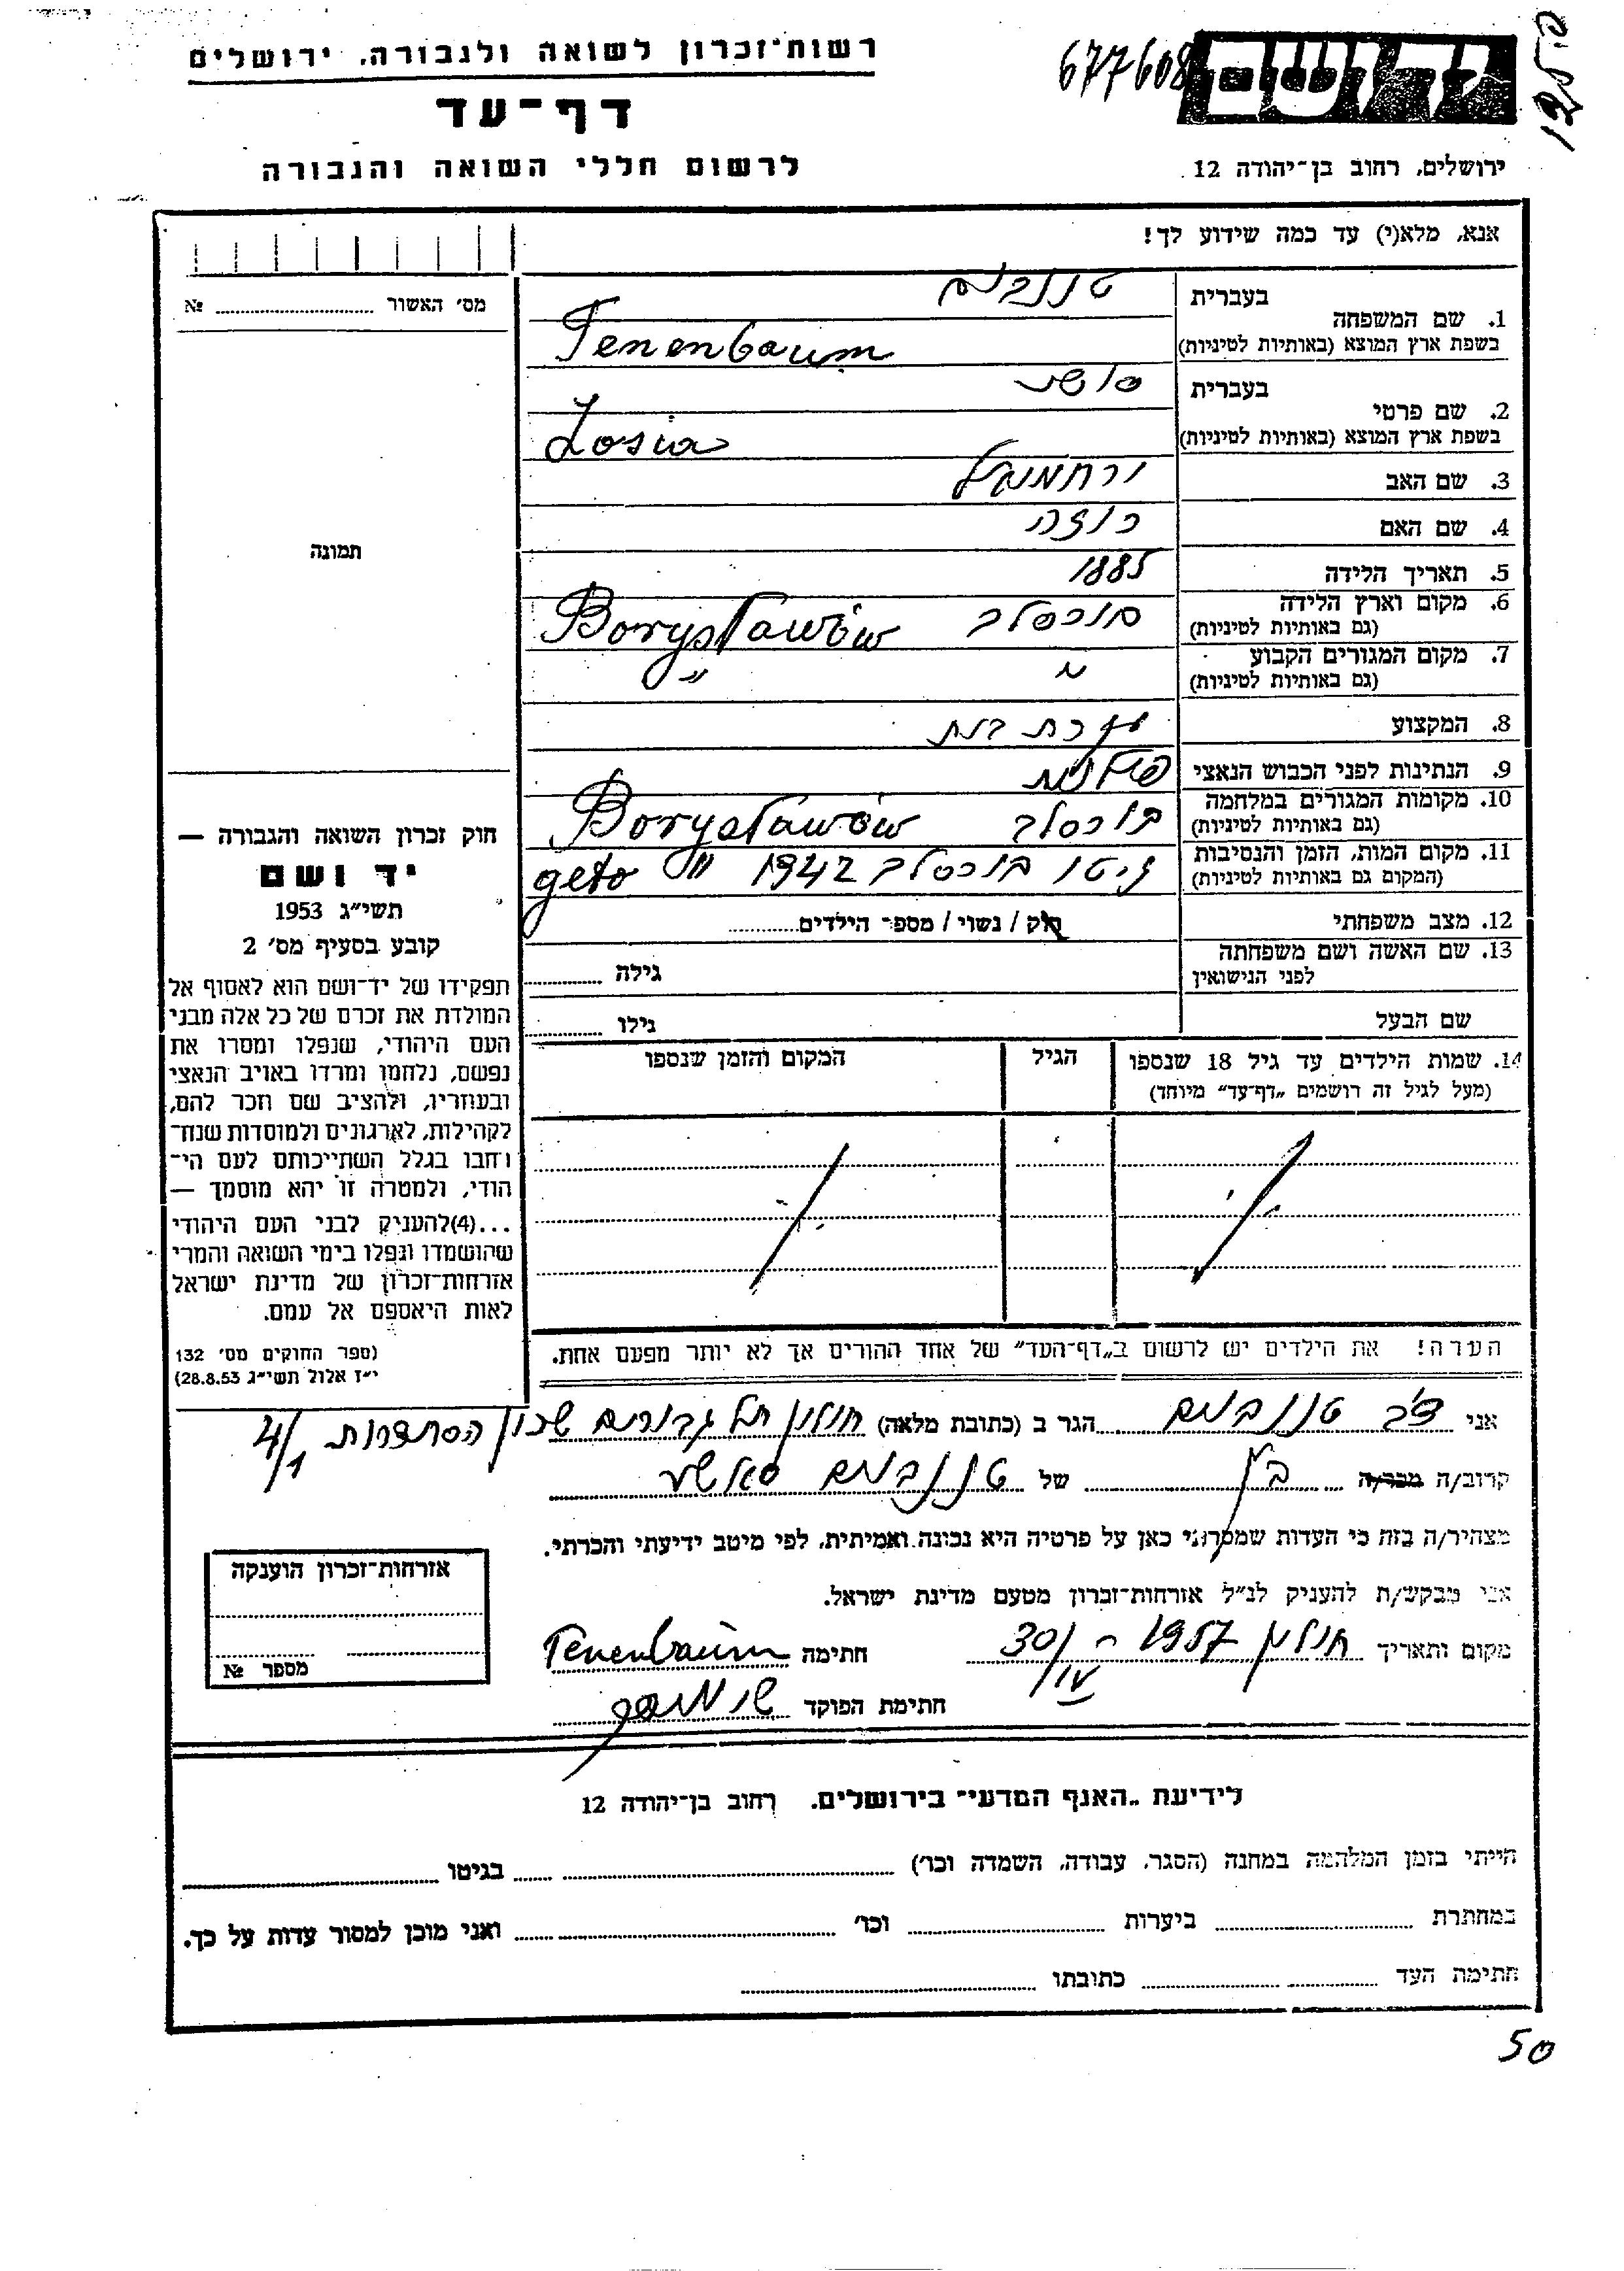 רשות־זכרון לשואה ולגבורה, ירושלים
677608
דף־עד
לרשום חללי השואה והגבורה
ירושלים, רחוב בן־יהודה 12
אנא, מלא(י) עד כמה שידוע לך!
מס׳ האשור №
תמונה
1. שם המשפחה
בעברית טננבוים
בשפת ארץ המוצא (באותיות לטיניות) Tenenbaum
2. שם פרטי
בעברית
בשפת ארץ המוצא (באותיות לטיניות) Zosia
3. שם האב ירחמיאל
4. שם האם רוזה
5. תאריך הלידה 1885
6. מקום וארץ הלידה
(גם באותיות לטיניות) Borysławów
7. מקום המגורים הקבוע
(גם באותיות לטיניות) "
8. המקצוע עקרת בית
9. הנתינות לפני הכבוש הנאצי פולנית
10. מקומות המגורים במלחמה
(גם באותיות לטיניות) בוריסלב Borysławów
11. מקום המות, הזמן והנסיבות
(המקום גם באותיות לטיניות) גיטו בוריסלב 1942 " geto
12. מצב משפחתי רוק / נשוי / מספר הילדים
13. שם האשה ושם משפחתה
לפני הנישואין גילה
שם הבעל גילו
14. שמות הילדים עד גיל 18 שנספו הגיל המקום והזמן שנספו
(מעל לגיל זה רושמים „דף־עד” מיוחד)
הערה! את הילדים יש לרשום ב„דף־העד” של אחד ההורים אך לא יותר מפעם אחת.
חוק זכרון השואה והגבורה —
יד ושם
תשי״ג 1953
קובע בסעיף מס׳ 2
תפקידו של יד־ושם הוא לאסוף אל
המולדת את זכרם של כל אלה מבני
העם היהודי, שנפלו ומסרו את
נפשם, נלחמו ומרדו באויב הנאצי
ובעוזריו, ולהציב שם וזכר להם,
לקהילות, לארגונים ולמוסדות שנח־
רבו בגלל השתייכותם לעם הי־
הודי, ולמטרה זו יהא מוסמך —
...(4) להעניק לבני העם היהודי
שהושמדו ונפלו בימי השואה והמרי
אזרחות־זכרון של מדינת ישראל
לאות היאספם אל עמם.
(ספר החוקים מס׳ 132
י״ז אלול תשי״ג 28.8.53)
אני צבי טננבוים הגר ב (כתובת מלאה) חולון תל גבורים שכון הסתדרות 4/1
קרוב/ה מכר/ה בן של טננבוים
מצהיר/ה בזה כי העדות שמסרתי כאן על פרטיה היא נכונה ואמיתית, לפי מיטב ידיעתי והכרתי.
אני מבקש/ת להעניק לנ״ל אזרחות־זכרון מטעם מדינת ישראל.
מקום ותאריך חולון 30/IV 1957 חתימה Tenenbaum
חתימת הפוקד
אזרחות־זכרון הוענקה
מספר №
לידיעת „האגף המדעי” בירושלים, רחוב בן־יהודה 12
הייתי בזמן המלחמה במחנה (הסגר, עבודה, השמדה וכו׳) בגיטו
במחתרת ביערות וכו׳ ואני מוכן למסור עדות על כך.
חתימת העד כתובתו
50